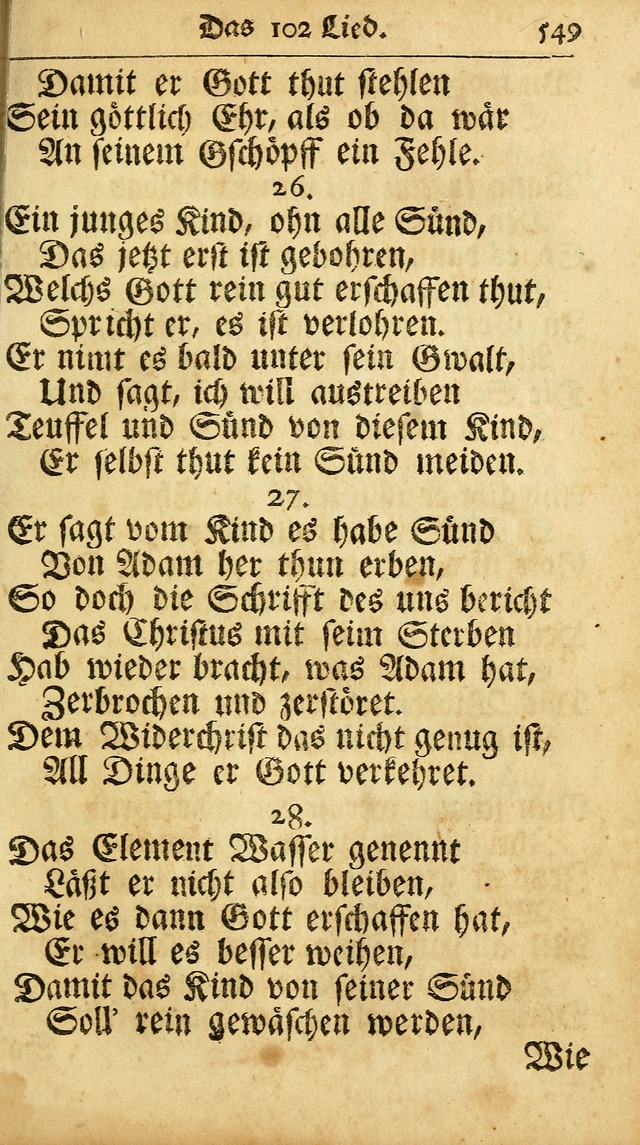 Das 102 Lied. 549
Damit er Gott thut stehlen
Sein göttlich Ehr, als ob da wär
An seinem Gschöpff ein Fehle.
26.
Ein junges Kind, ohn alle Sünd,
Das jetzt erst ist gebohren,
Welchs Gott rein gut erschaffen thut,
Spricht er, es ist verlohren.
Er nimt es bald unter sein Gwalt,
Und sagt, ich will austreiben
Teuffel und Sünd von diesem Kind,
Er selbst thut kein Sünd meiden.
27.
Er sagt vom Kind es habe Sünd
Von Adam her thun erben,
So doch die Schrifft des uns bericht
Das Christus mit seim Sterben
Hab wieder bracht, was Adam hat,
Zerbrochen und zerstöret.
Dem Widerchrist das nicht genug ist,
All Dinge er Gott verkehret.
28.
Das Element Wasser genennt
Läßt er nicht also bleiben,
Wie es dann Gott erschaffen hat,
Er will es besser weihen,
Damit das Kind von seiner Sünd
Soll' rein gewäschen werden,
Wie